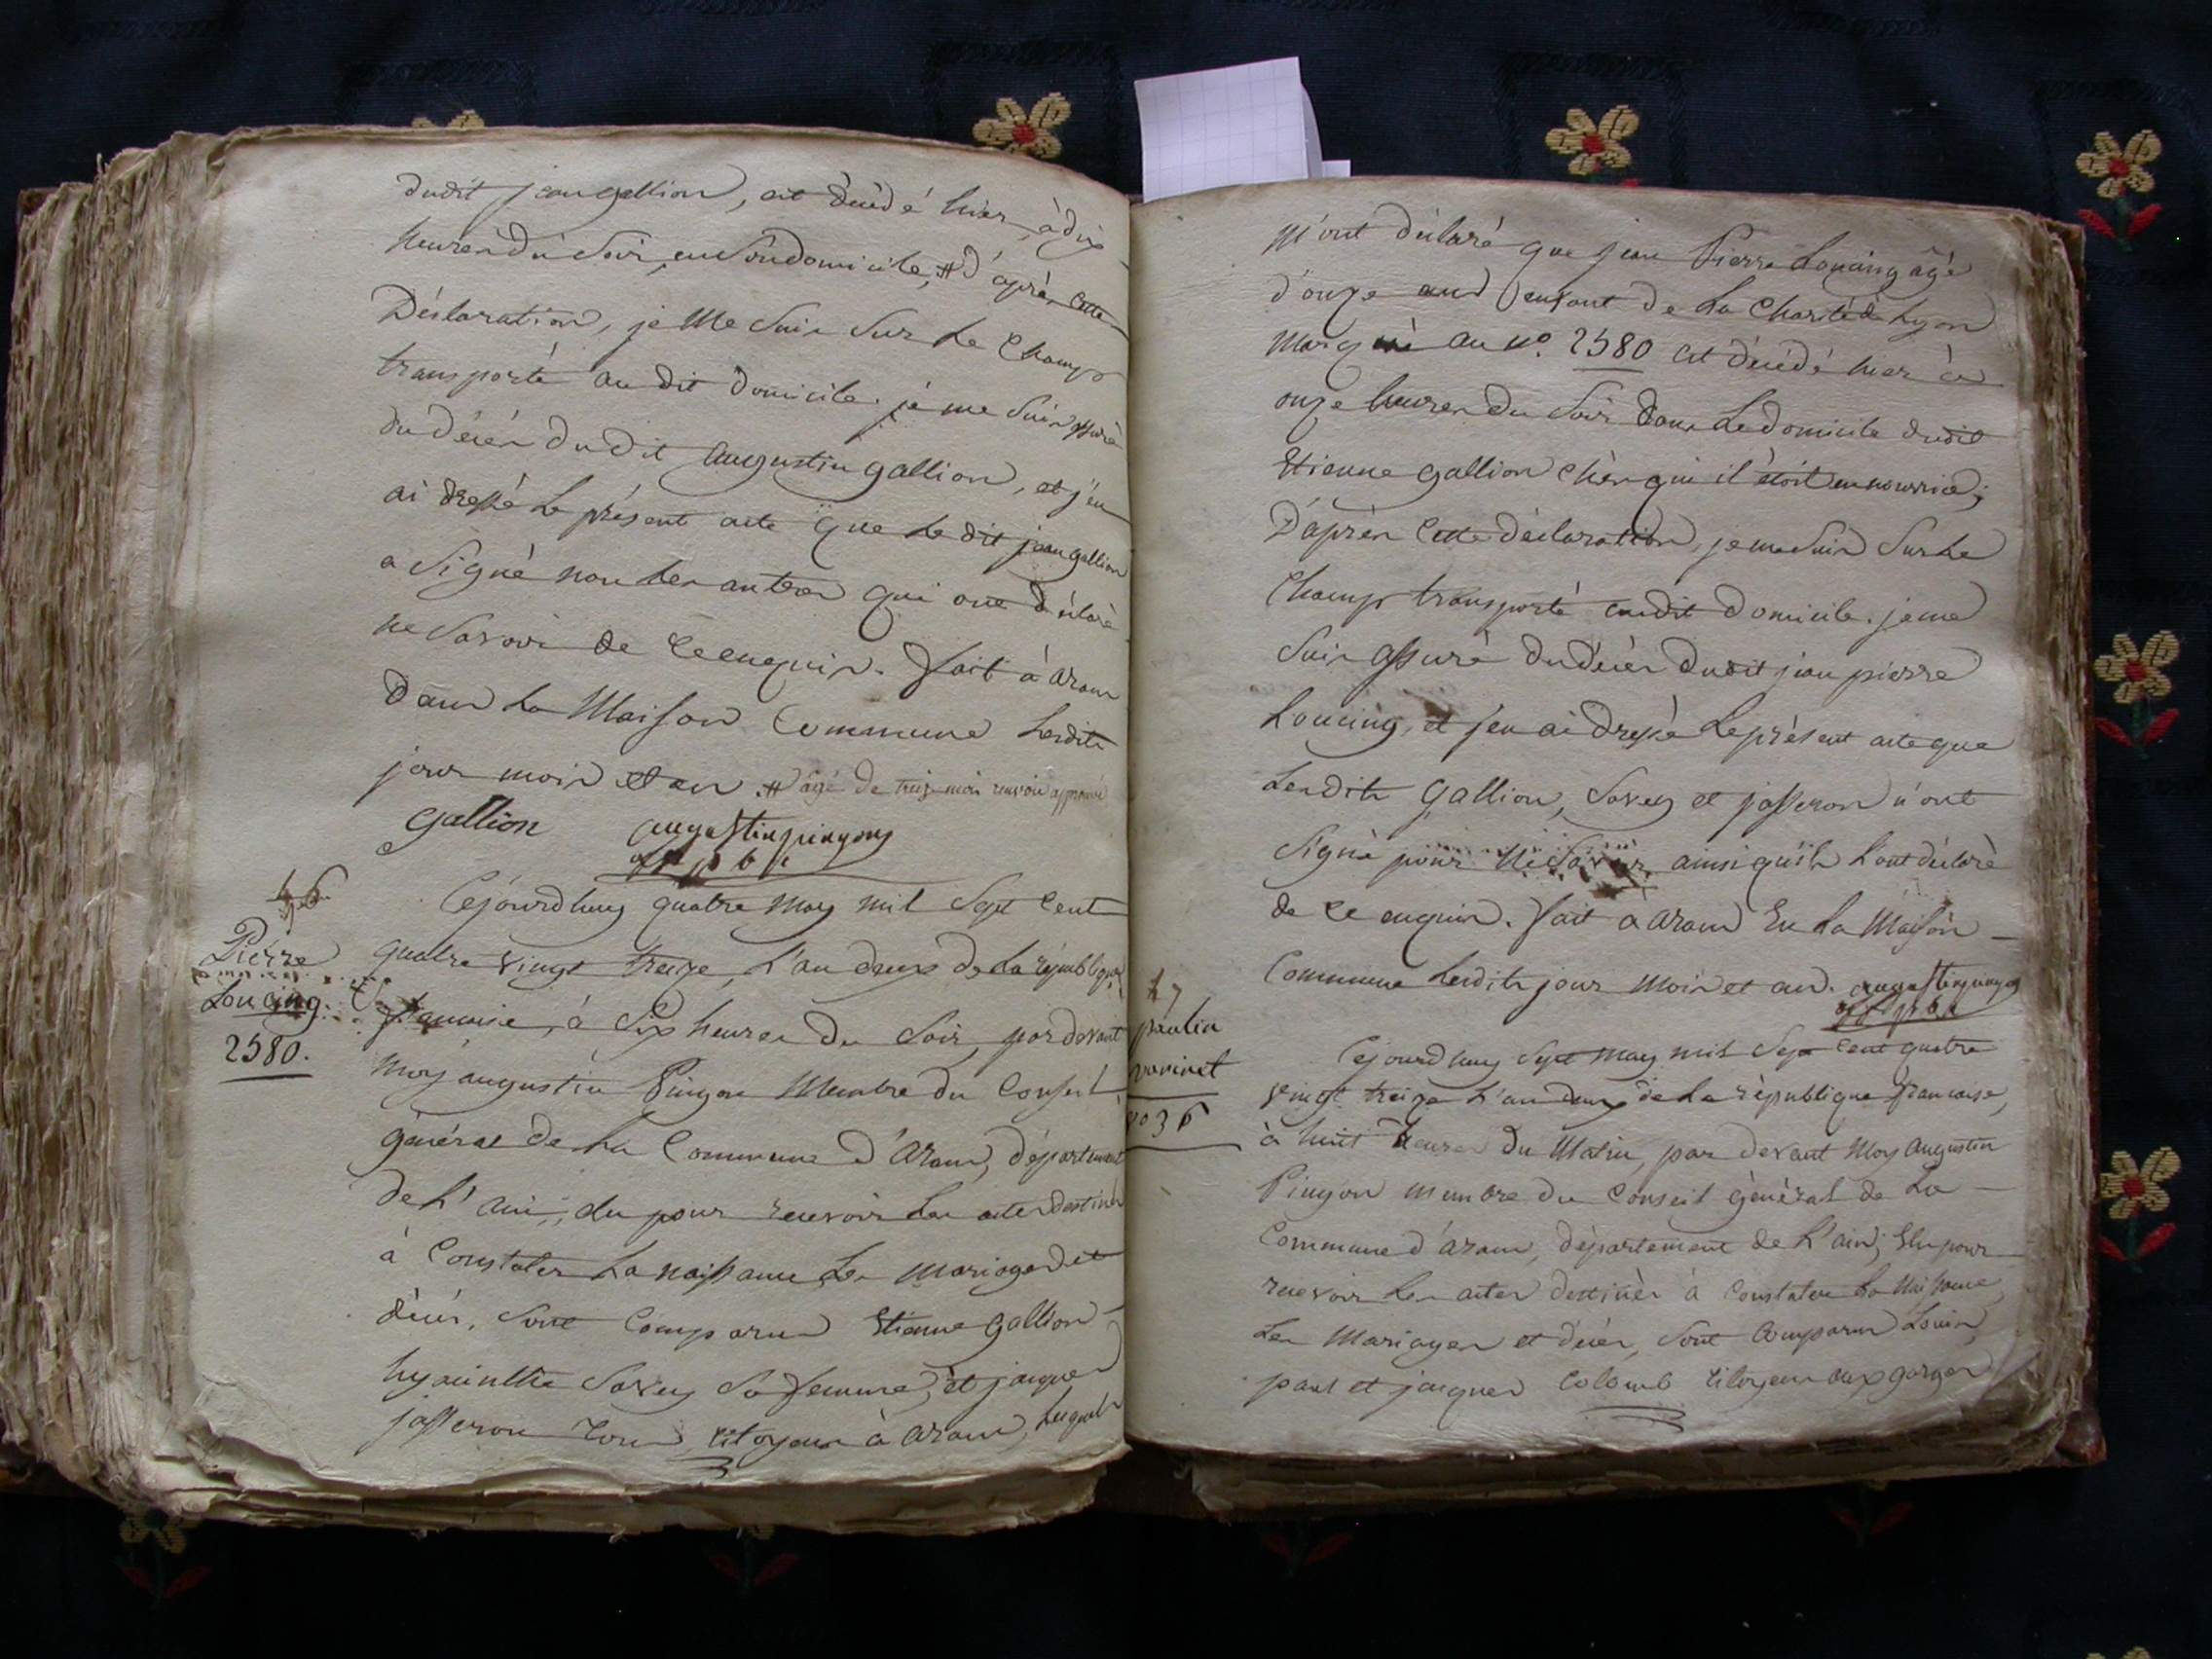 dudit jean gallion, est décédé hier, à dix
heures du Soir, en Son domicile, # d'après Cette
Déclaration, je Me Suis Sur Le Champ
transporté au dit domicile. je me Suis assuré
du décès dudit augustin gallion, et j'en
ai dressé Le présent acte que Le dit jean gallion
a Signé non Les autres qui ont déclaré
ne Savoir de Ce enquis. fait à aram
dans La Maison Commune Lesdits
jour mois et an. # agé de treize mois renvoi approuvé
gallion augustin pingon
off p b l
46
Cejourdhuy quatre may mil Sept Cent
Pierre
quatre vingt treize, L'an deux de La republique
Loucing.
francaise, à Six heures du Soir, par devant
2580.
moy augustin Pingon Membre du Conseil
général de La Commune d'aram, département
de L'ain, elu pour recevoir Les actes destinés
à Constater La naissance Les mariages et
décès, Sont Comparus Etienne gallion
hyacinthe Savey Sa femme, et jacques
josseron tous citoyens à aram, Lesquels
m'ont déclaré que jean Pierre Loucing âgé
d'onze ans enfant de La Charité de Lyon
Marqué au no. 2580 est décédé hier à
onze heures du Soir dans Le domicile dudit
Etienne gallion chès qui il étoit en nourrice;
D'après Cette déclaration, je me Suis Sur Le
Champ transporté audit domicile. je me
Suis assuré du décès dudit jean pierre
Loucing, et j'en ai dressé Le présent acte que
Lesdits gallion, Savey et josseron n'ont
Signé pour ne Savoir ainsi qu'ils L'ont déclaré
de Ce enquis. fait à aram En La Maison
Commune Lesdits jour Mois et an. augustin pingon
off p b l
47
paulin
Cejourdhuy Sept may mil Sept Cent quatre
vingt treize L'an deux de La république francaise,
à huit heures du Matin, par devant Moy augustin
Pingon membre du Conseil général de La
Commune d'aram, département de L'ain; Elu pour
recevoir Les actes destinés à Constater La Naissance
Les Mariages et décès, Sont Comparus Louis
paul et jacques Colomb citoyens aux gorges